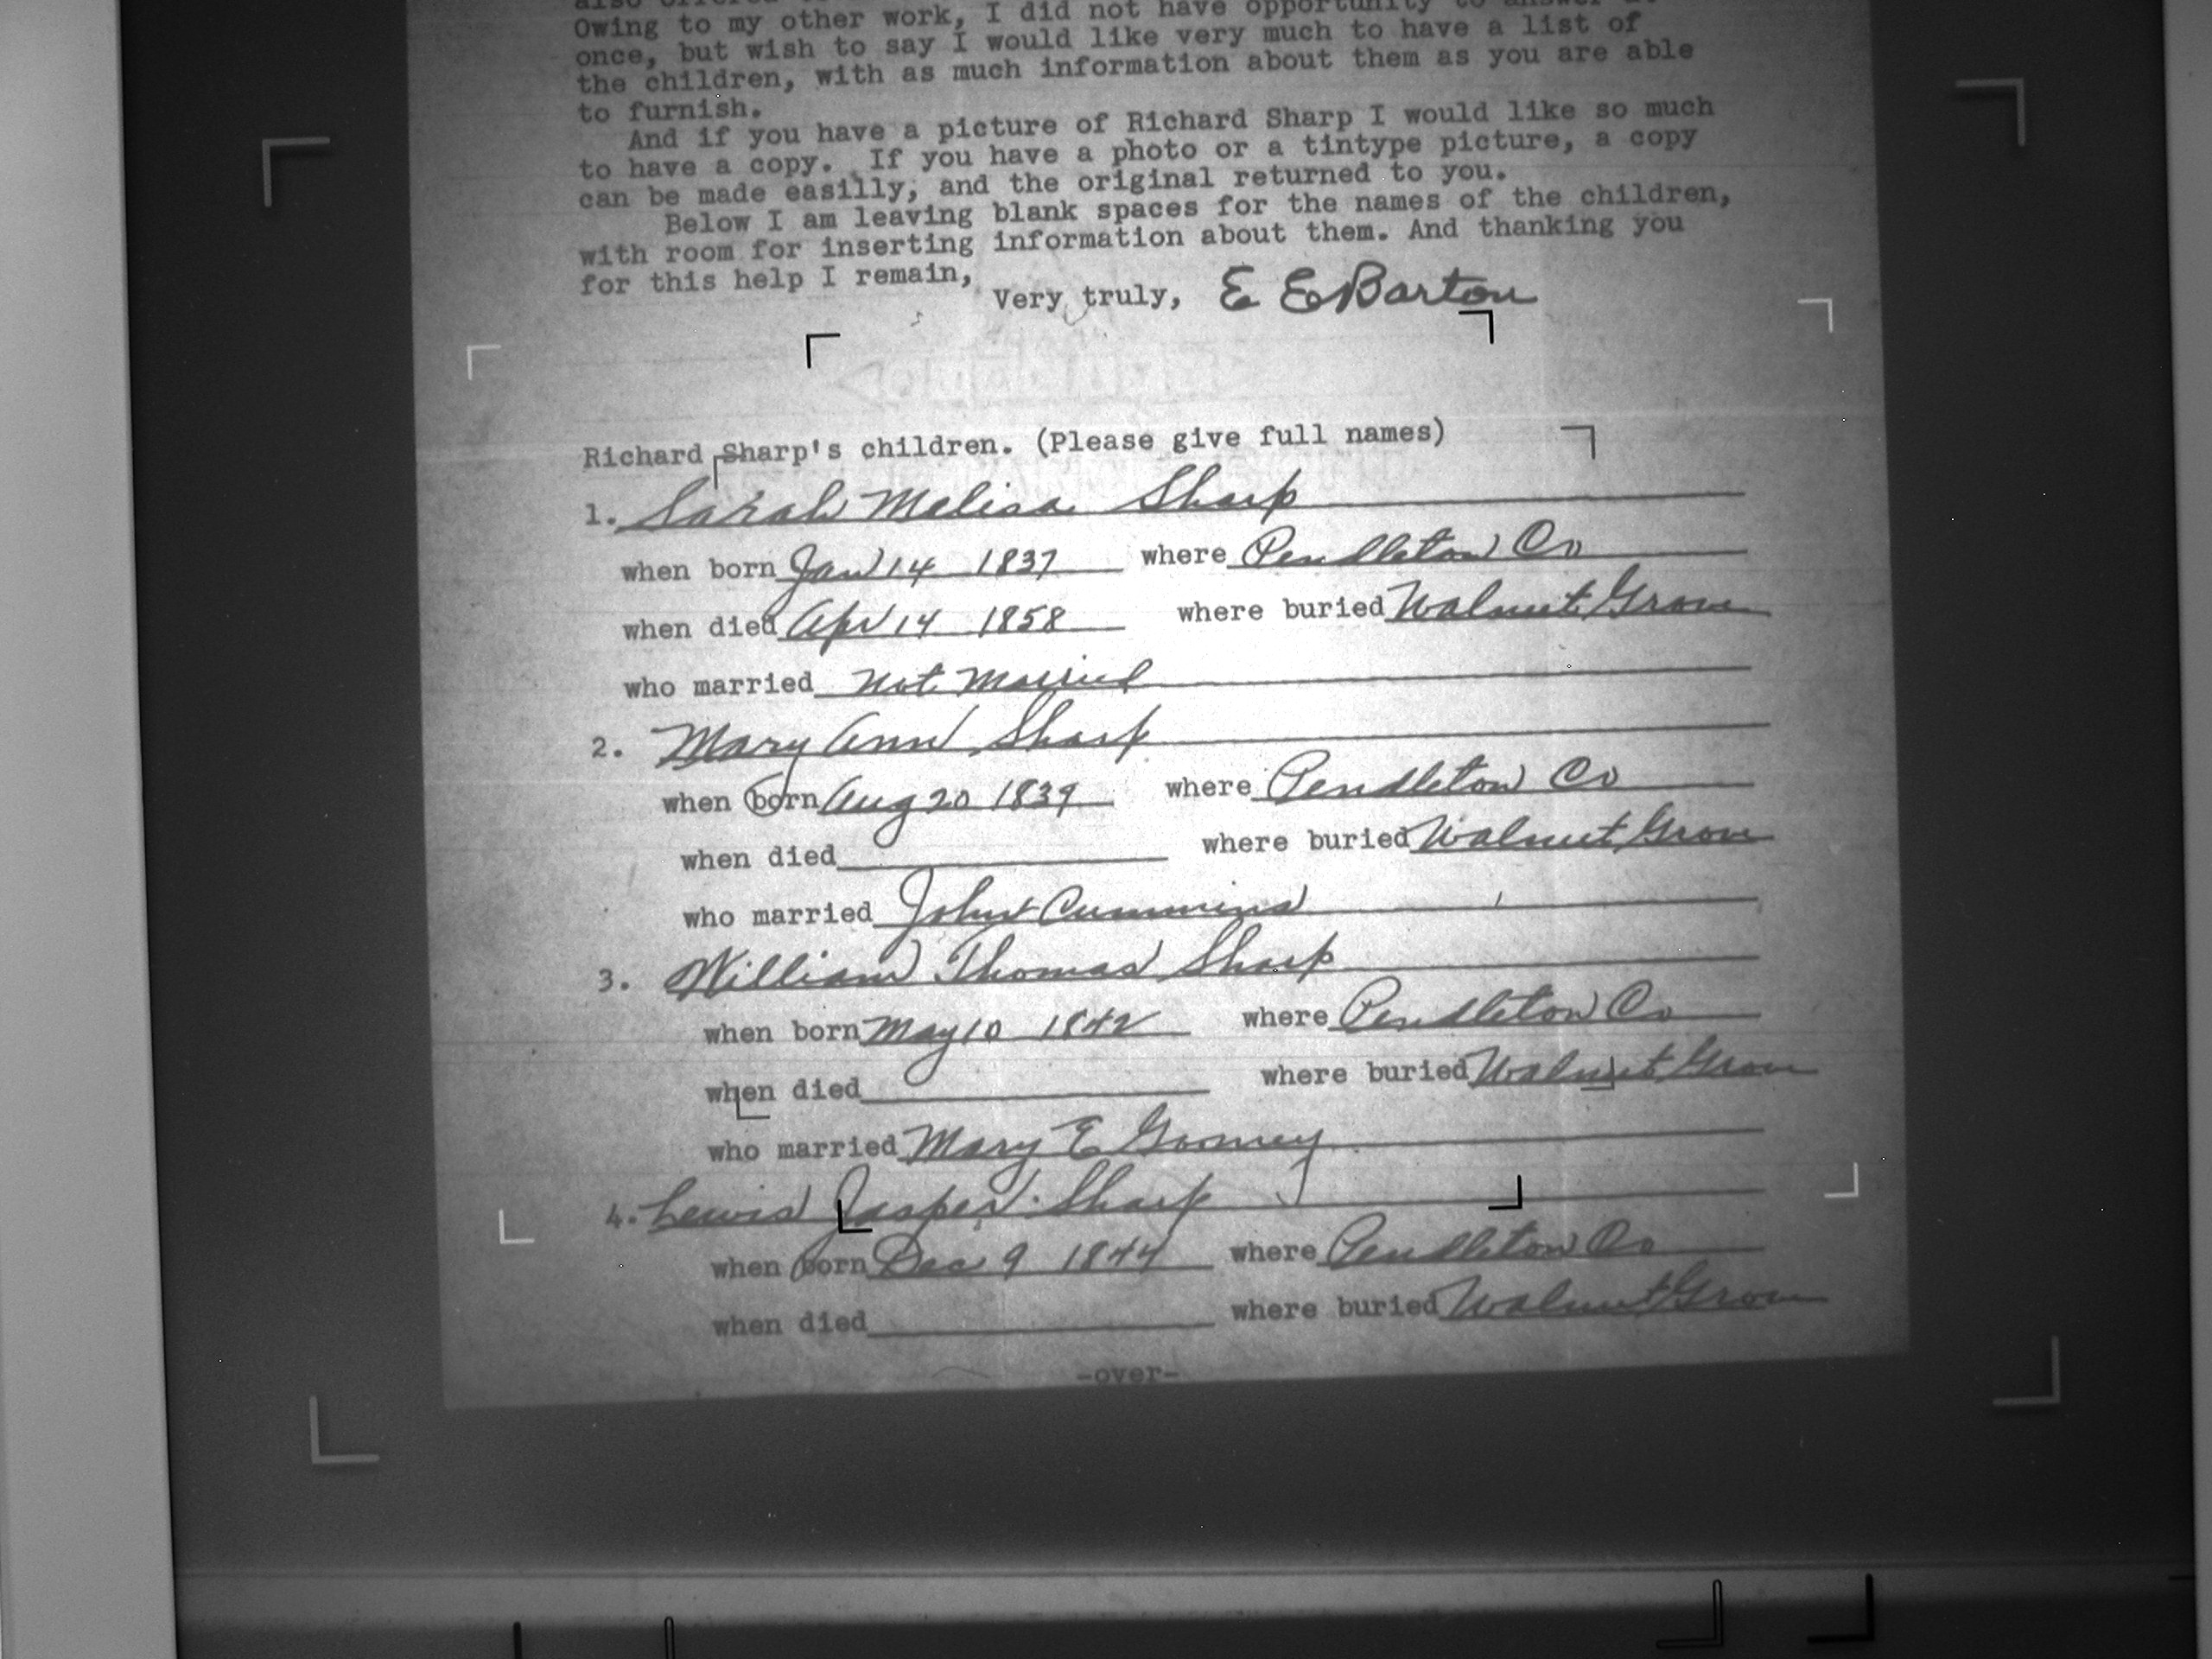 Owing to my other work, I did not have opportunity to answer at
once, but wish to say I would like very much to have a list of
the children, with as much information about them as you are able
to furnish.
And if you have a picture of Richard Sharp I would like so much
to have a copy. If you have a photo or a tintype picture, a copy
can be made easilly, and the original returned to you.
Below I am leaving blank spaces for the names of the children,
with room for inserting information about them. And thanking you
for this help I remain,
Very truly, E E Barton
Richard Sharp's children. (Please give full names)
1. Sarah Melisa Sharp
when born Jan 14 1837 where Pendleton Co
when died Apr 14 1858 where buried Walnut Grove
who married Not Married
2. Mary Ann Sharp
when born Aug 20 1839 where Pendleton Co
when died where buried Walnut Grove
who married John Cummins
3. William Thomas Sharp
when born May 10 1842 where Pendleton Co
when died where buried Walnut Grove
who married Mary E
4. Lewis Jasper Sharp
when born Dec 9 1844 where Pendleton Co
when died where buried Walnut Grove
-over-